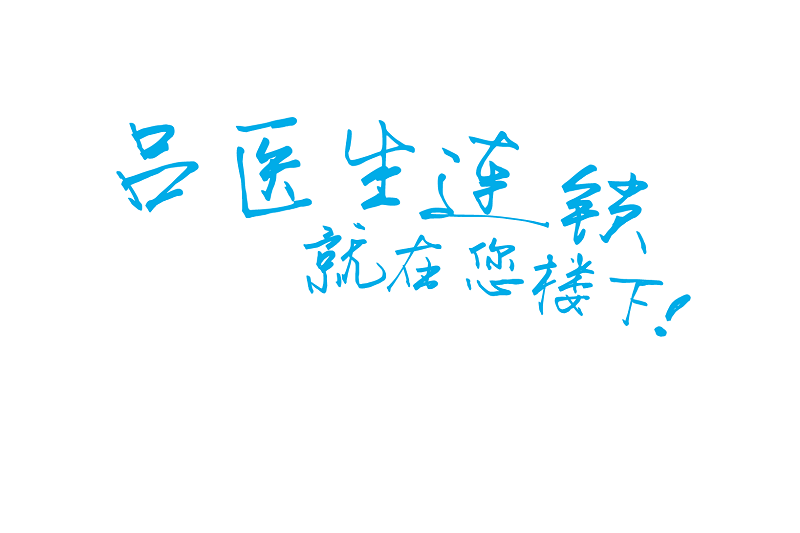 吕医生连锁
就在您楼下!